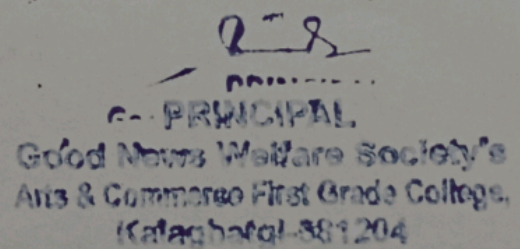 PRINCIPAL
Good News Welfare Society's
Arts & Commerce First Grade College,
Kalaghatgi-581204